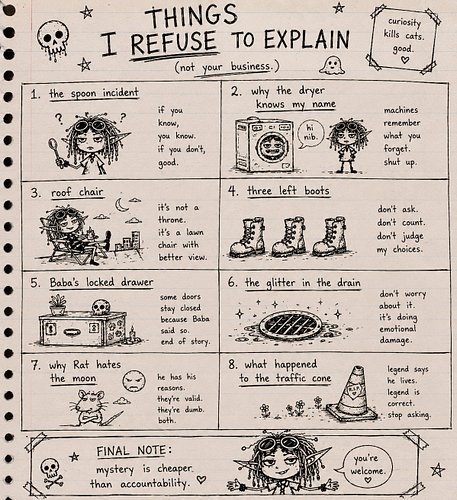 THINGS
I REFUSE TO EXPLAIN
(not your business.)
curiosity
kills cats.
good.
1. the spoon incident
? ?
if you
know,
you know.
if you don't,
good.
2. why the dryer
knows my name
hi
nib.
machines
remember
what you
forget.
shut up.
3. roof chair
it's not a
throne.
it's a lawn
chair with
better view.
4. three left boots
don't ask.
don't count.
don't judge
my choices.
5. Baba's locked drawer
some doors
stay closed
because Baba
said so.
end of story.
6. the glitter in the drain
don't worry
about it.
it's doing
emotional
damage.
7. why Rat hates
the moon
he has his
reasons.
they're valid.
they're dumb.
both.
8. what happened
to the traffic cone
R.I.P.
legend says
he lives.
legend is
correct.
stop asking.
FINAL NOTE:
mystery is cheaper
than accountability.
you're
welcome.